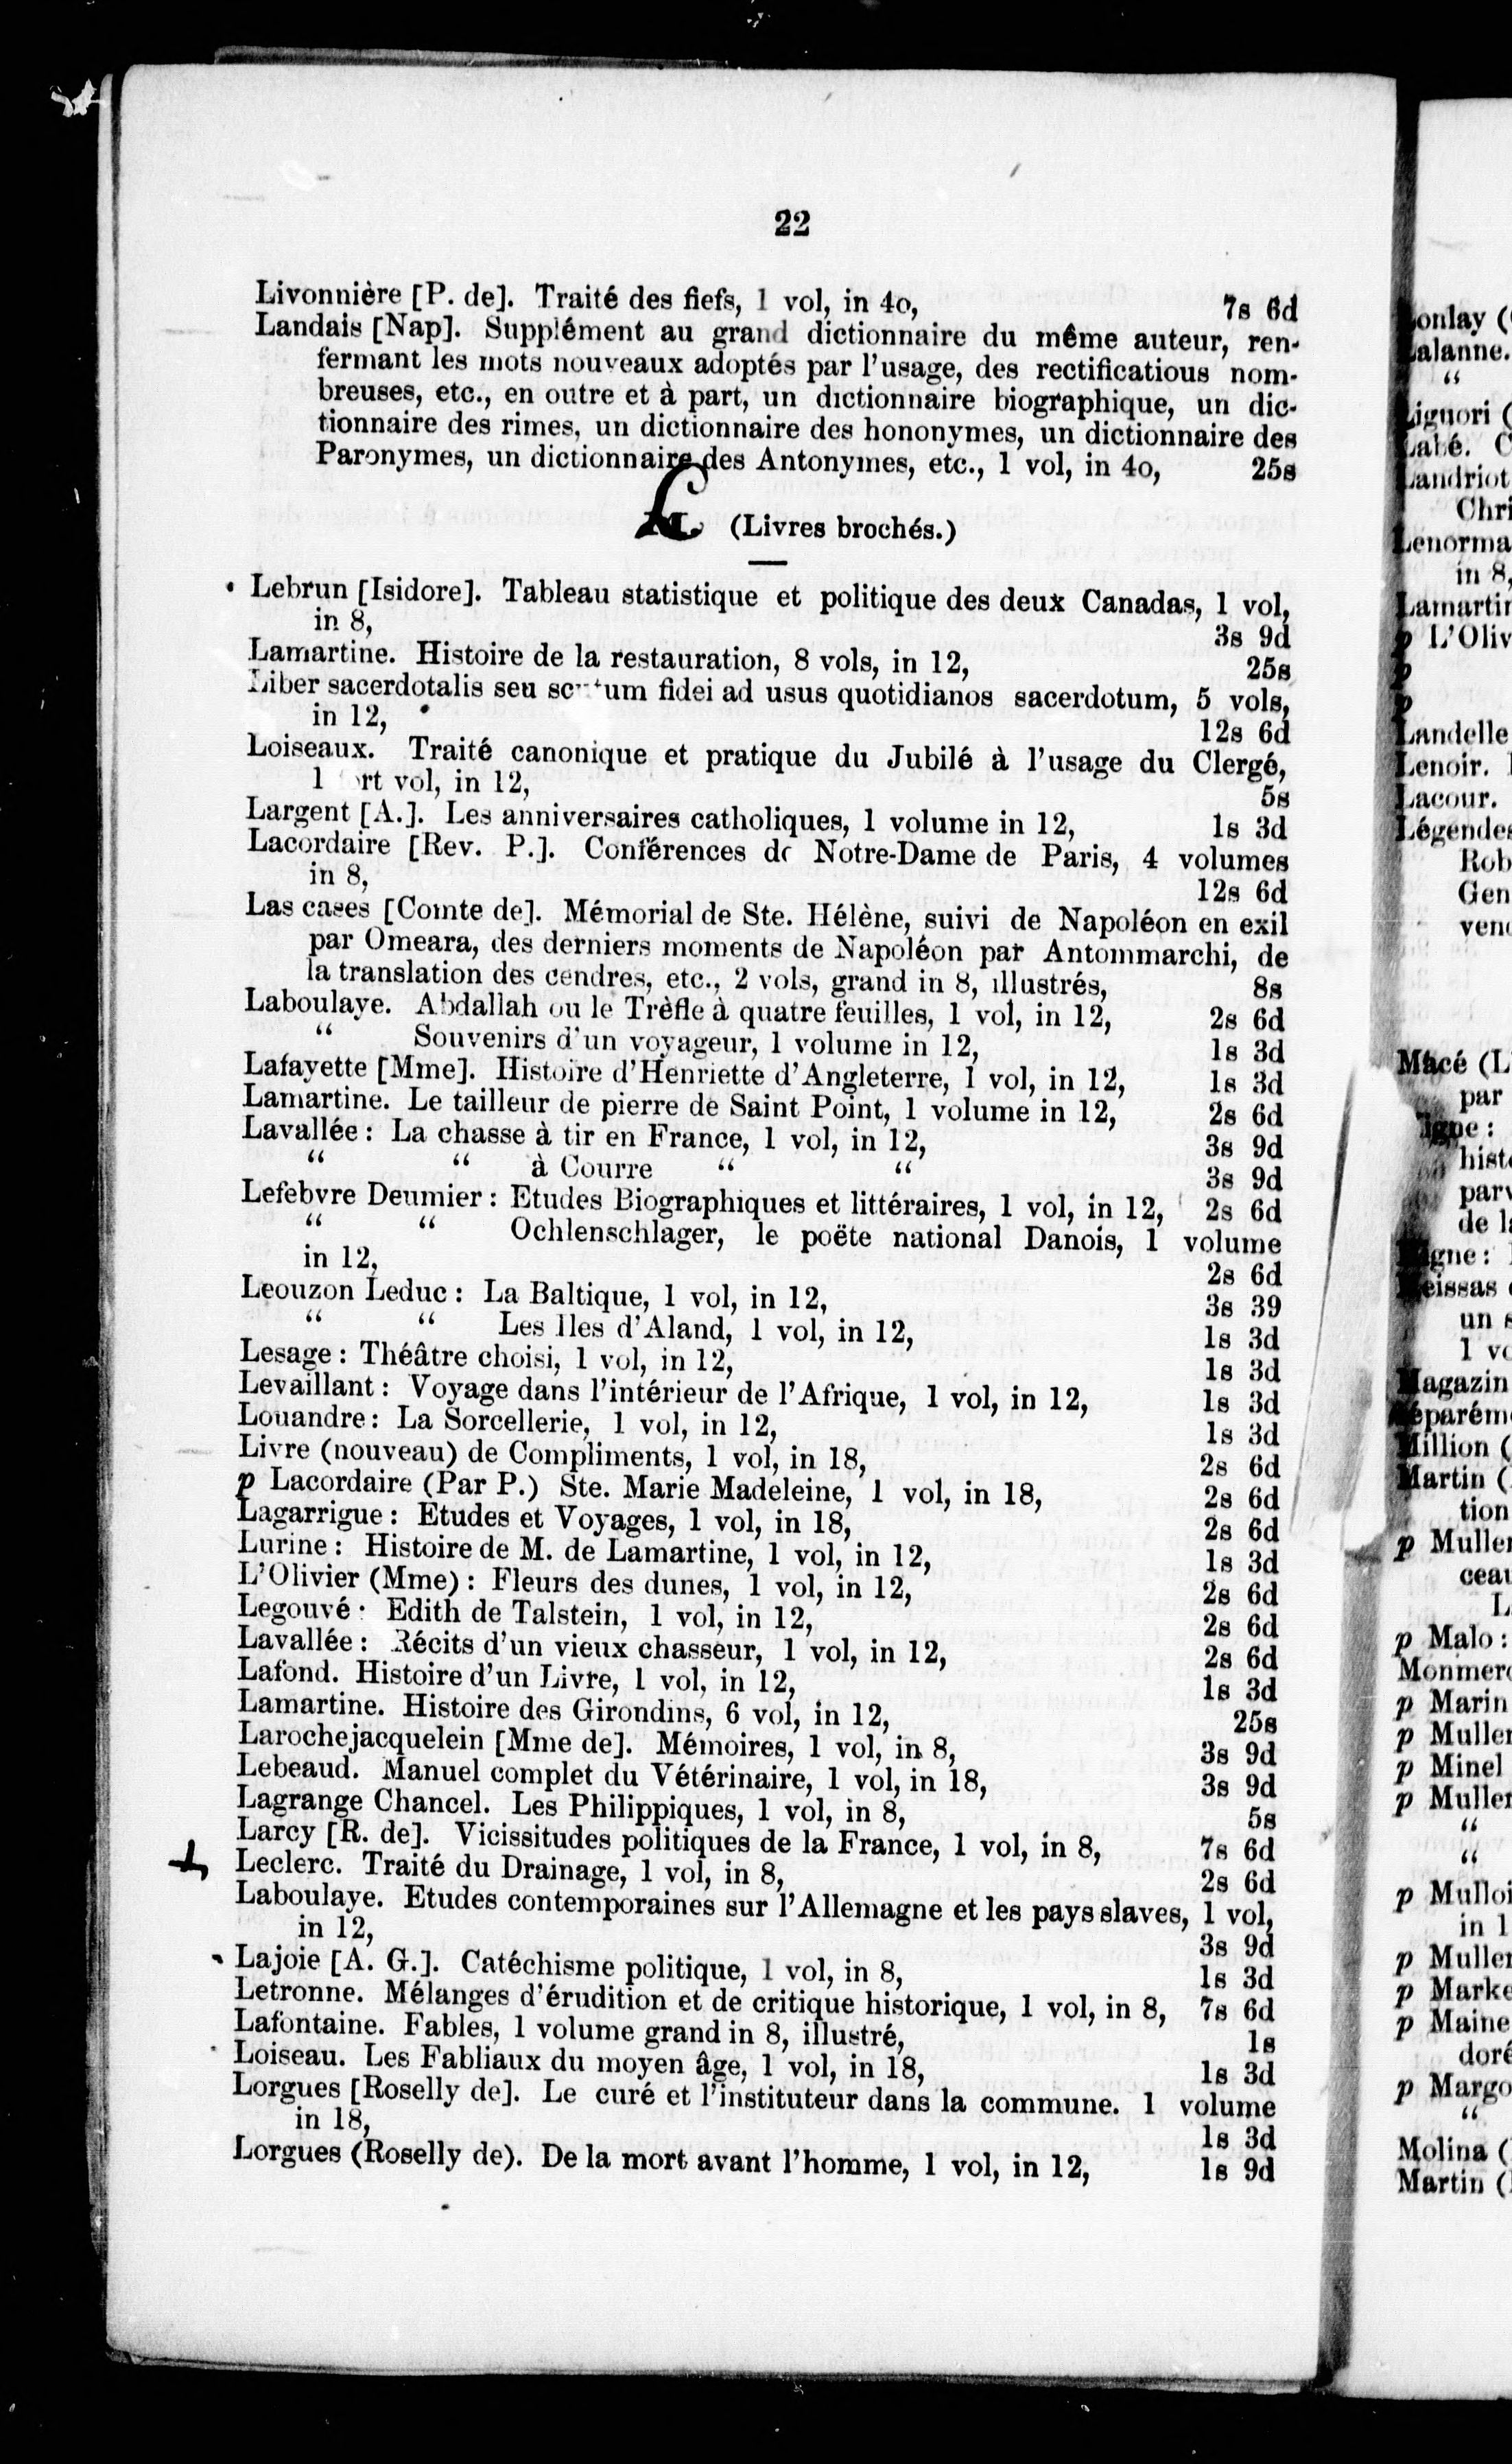 22
Livonnière [P. de]. Traité des fiefs, 1 vol, in 4o, 7s 6d
Landais [Nap]. Supplément au grand dictionnaire du même auteur, ren-
fermant les mots nouveaux adoptés par l'usage, des rectificatious nom-
breuses, etc., en outre et à part, un dictionnaire biographique, un dic-
tionnaire des rimes, un dictionnaire des hononymes, un dictionnaire des
Paronymes, un dictionnaire des Antonymes, etc., 1 vol, in 4o, 25s
L (Livres brochés.)
Lebrun [Isidore]. Tableau statistique et politique des deux Canadas, 1 vol,
in 8, 3s 9d
Lamartine. Histoire de la restauration, 8 vols, in 12, 25s
Liber sacerdotalis seu fidei ad usus quotidianos sacerdotum, 5 vols,
in 12, 12s 6d
Loiseaux. Traité canonique et pratique du Jubilé à l'usage du Clergé,
1 fort vol, in 12, 5s
Largent [A.]. Les anniversaires catholiques, 1 volume in 12, 1s 3d
Lacordaire [Rev. P.]. Conférences de Notre-Dame de Paris, 4 volumes
in 8, 12s 6d
Las cases [Comte de]. Mémorial de Ste. Hélène, suivi de Napoléon en exil
par Omeara, des derniers moments de Napoléon par Antommarchi, de
la translation des cendres, etc., 2 vols, grand in 8, illustrés, 8s
Laboulaye. Abdallah ou le Trèfle à quatre feuilles, 1 vol, in 12, 2s 6d
" Souvenirs d'un voyageur, 1 volume in 12, 1s 3d
Lafayette [Mme]. Histoire d'Henriette d'Angleterre, 1 vol, in 12, 1s 3d
Lamartine. Le tailleur de pierre de Saint Point, 1 volume in 12, 2s 6d
Lavallée : La chasse à tir en France, 1 vol, in 12, 3s 9d
" " à Courre " " 3s 9d
Lefebvre Deumier : Etudes Biographiques et littéraires, 1 vol, in 12, 2s 6d
" " Ochlenschlager, le poëte national Danois, 1 volume
in 12, 2s 6d
Leouzon Leduc : La Baltique, 1 vol, in 12, 3s 39
" " Les Iles d'Aland, 1 vol, in 12, 1s 3d
Lesage : Théâtre choisi, 1 vol, in 12, 1s 3d
Levaillant : Voyage dans l'intérieur de l'Afrique, 1 vol, in 12, 1s 3d
Louandre : La Sorcellerie, 1 vol, in 12, 1s 3d
Livre (nouveau) de Compliments, 1 vol, in 18, 2s 6d
p Lacordaire (Par P.) Ste. Marie Madeleine, 1 vol, in 18, 2s 6d
Lagarrigue : Etudes et Voyages, 1 vol, in 18, 2s 6d
Lurine : Histoire de M. de Lamartine, 1 vol, in 12, 1s 3d
L'Olivier (Mme) : Fleurs des dunes, 1 vol, in 12, 2s 6d
Legouvé : Edith de Talstein, 1 vol, in 12, 2s 6d
Lavallée : Récits d'un vieux chasseur, 1 vol, in 12, 2s 6d
Lafond. Histoire d'un Livre, 1 vol, in 12, 1s 3d
Lamartine. Histoire des Girondins, 6 vol, in 12, 25s
Larochejacquelein [Mme de]. Mémoires, 1 vol, in 8, 3s 9d
Lebeaud. Manuel complet du Vétérinaire, 1 vol, in 18, 3s 9d
Lagrange Chancel. Les Philippiques, 1 vol, in 8, 5s
Larcy [R. de]. Vicissitudes politiques de la France, 1 vol, in 8, 7s 6d
Leclerc. Traité du Drainage, 1 vol, in 8, 2s 6d
Laboulaye. Etudes contemporaines sur l'Allemagne et les pays slaves, 1 vol,
in 12, 3s 9d
Lajoie [A. G.]. Catéchisme politique, 1 vol, in 8, 1s 3d
Letronne. Mélanges d'érudition et de critique historique, 1 vol, in 8, 7s 6d
Lafontaine. Fables, 1 volume grand in 8, illustré, 1s
Loiseau. Les Fabliaux du moyen âge, 1 vol, in 18, 1s 3d
Lorgues [Roselly de]. Le curé et l'instituteur dans la commune. 1 volume
in 18, 1s 3d
Lorgues (Roselly de). De la mort avant l'homme, 1 vol, in 12, 1s 9d
alanne.
"
Liguori (
Labé. C
Landriot
Chri
Lenorma
in 8,
Lamartin
p L'Oliv
p
p
Landelle
Lenoir.
Lacour.
Légendes
Rob
Gen
vend
Macé (L
par
hist
parv
de l
un s
1 vo
Magazin
Million (
Martin (
tion
p Muller
ceau
L
p Malo :
Monmerq
p Marin
p Muller
p Minel
p Muller
"
"
p Mulloi
in 1
p Muller
p Marke
p Maine
doré
p Margo
"
Molina (
Martin (